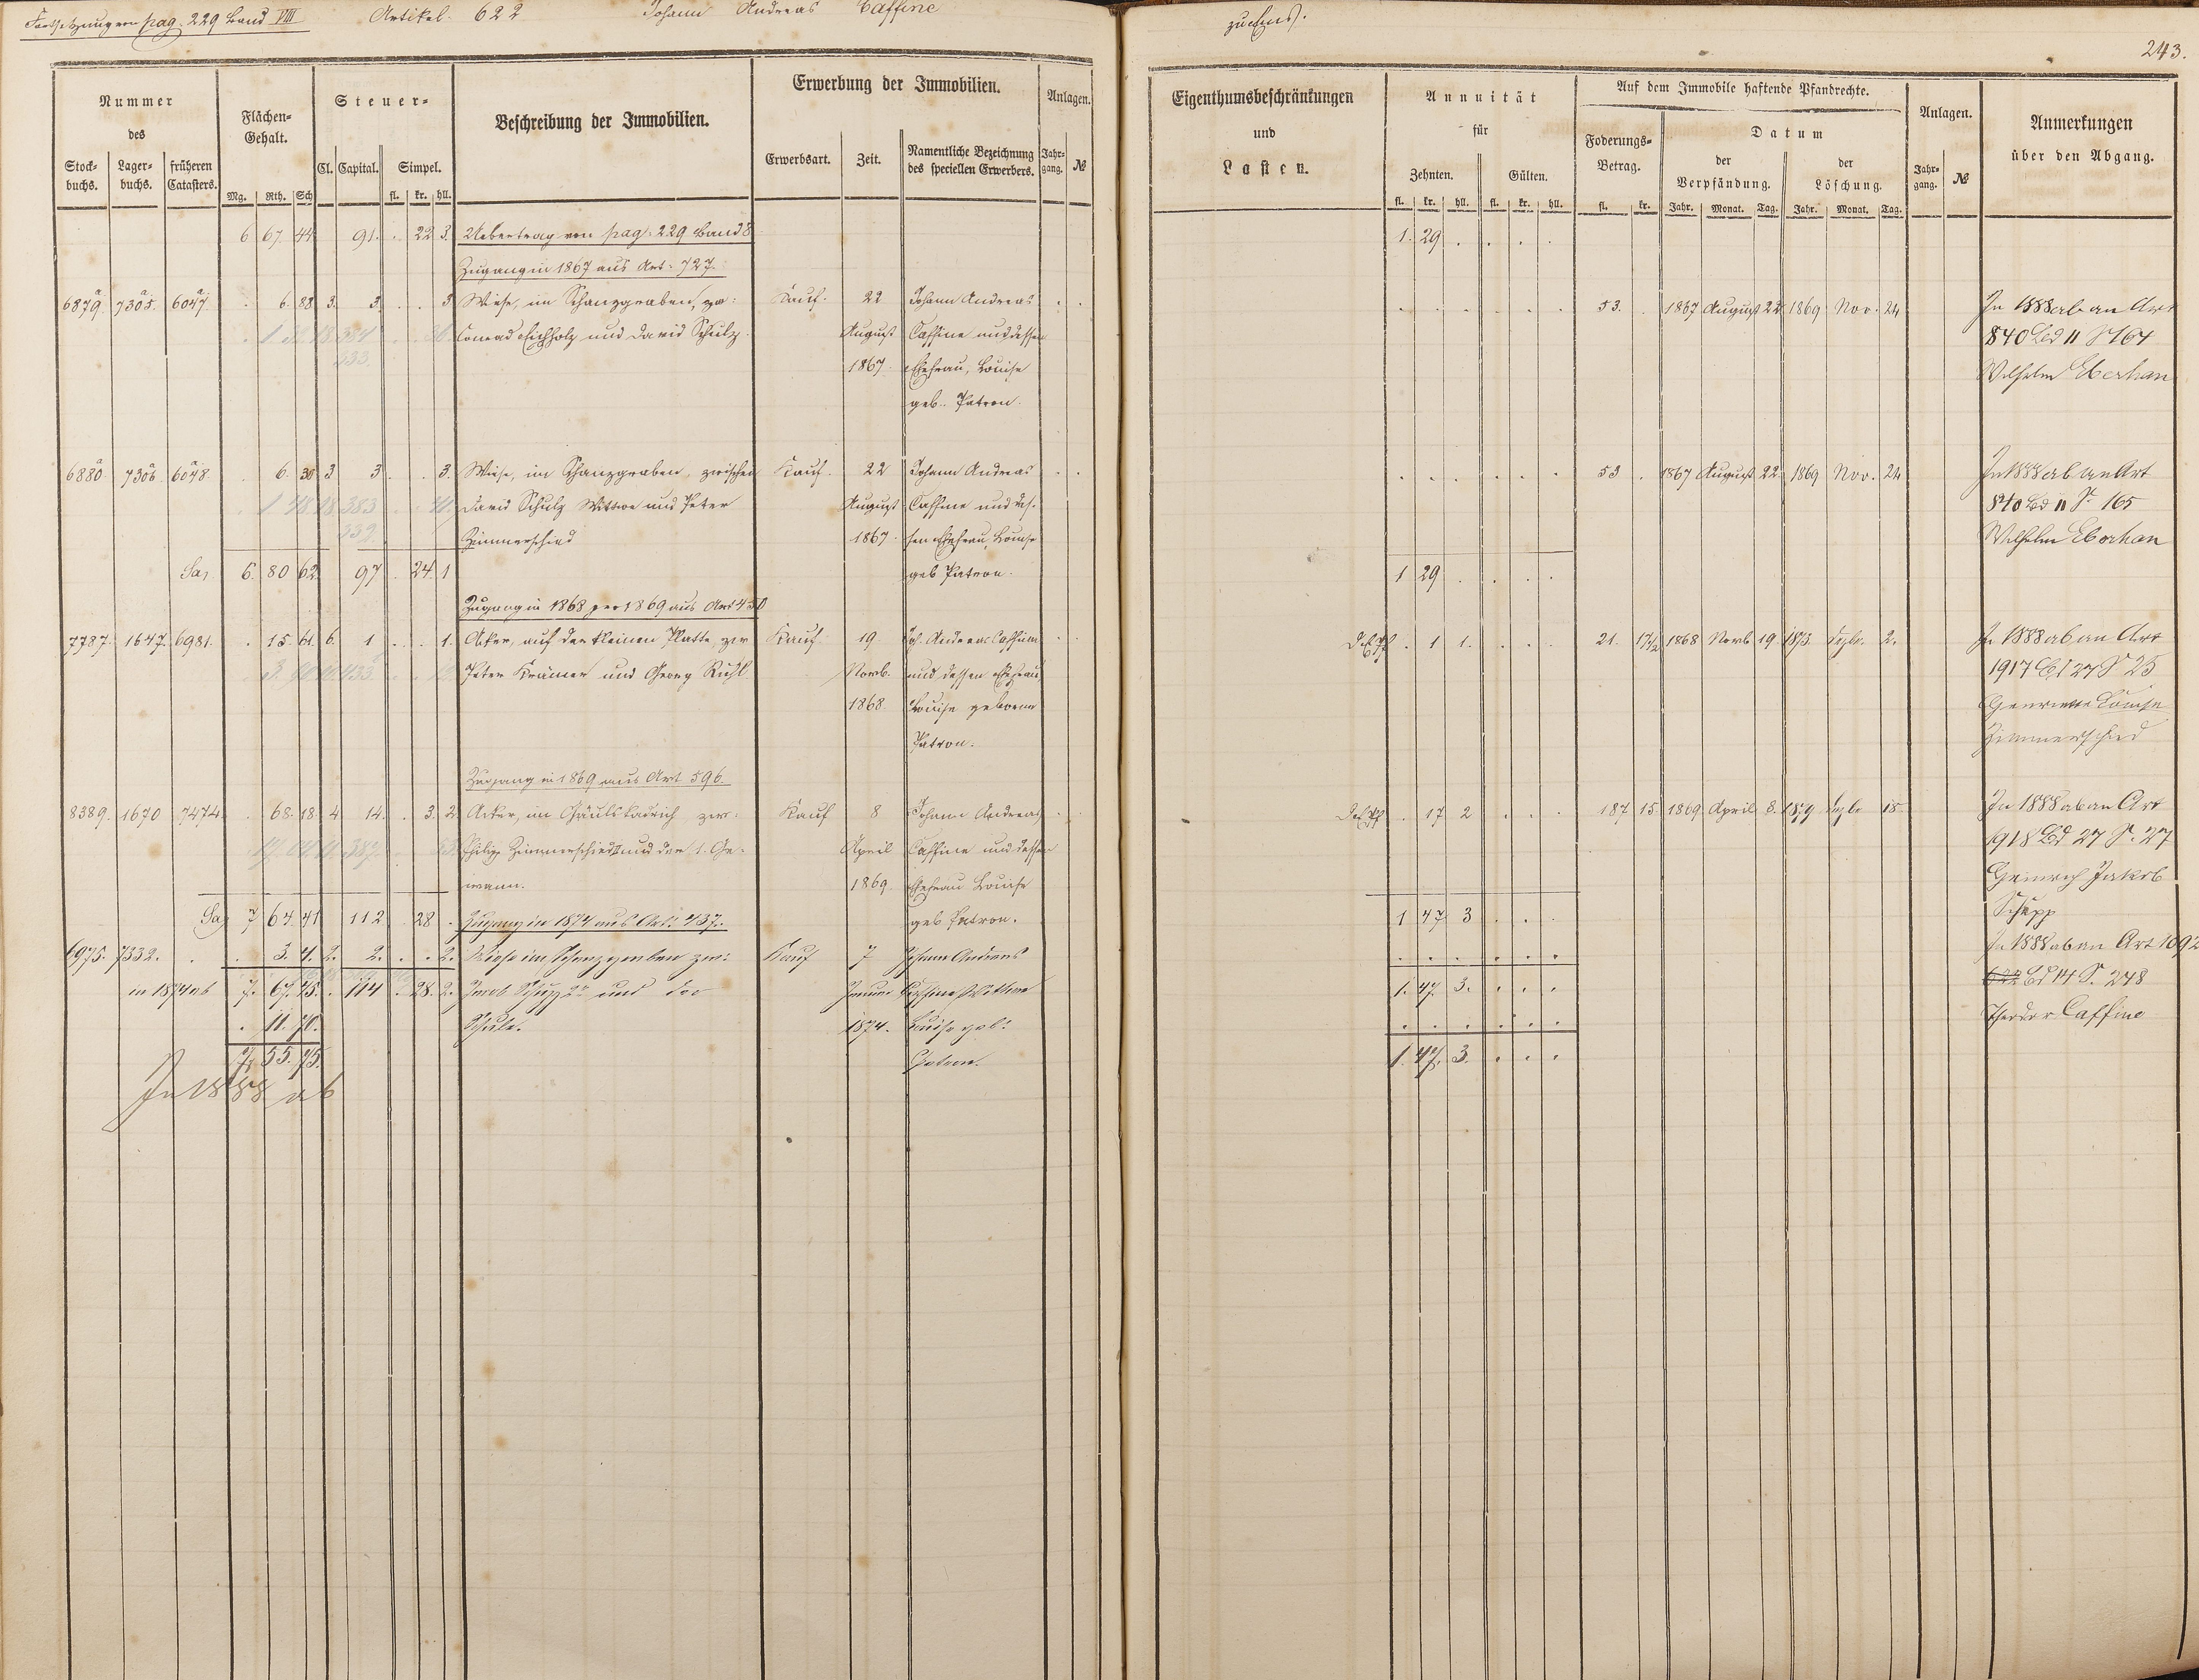 Fortsetzung von pag. 229 Band VIII Artikel 622 Johann Andreas Caffine
zu Ems.
243.
Nummer des
Stock-buchs. Lager-buchs. früheren Catasters.
Flächen-Gehalt.
Mg. Rth. Sch
Steuer-
Cl. Capital. Simpel.
fl. kr. hll.
Beschreibung der Immobilien.
Erwerbung der Immobilien.
Erwerbsart. Zeit. Namentliche Bezeichnung des speciellen Erwerbers.
Anlagen.
Jahr-gang. №
Eigenthumsbeschränkungen
und
Lasten.
Annuität
für
Zehnten. Gülten.
fl. kr. hll. fl. kr. hll.
Auf dem Immobile haftende Pfandrechte.
Foderungs-Betrag.
fl. kr.
Datum
der Verpfändung. der Löschung.
Jahr. Monat. Tag. Jahr. Monat. Tag.
Anlagen.
Jahr-gang. №
Anmerkungen
über den Abgang.
6 67 44 91. . 22 3. Uebertrag von pag. 229 Band 8 1. 29 . . . .
Zugang in 1867 aus Art. 727.
6879a. 7305a. 6047a. . 6. 88 3. 3. . . 3 Wiese, im Schanzgraben, zw: Kauf. 22 Johann Andreas . . 53. . 1867 August 22. 1869 Nov. 24 In 1888 ab an Art
Conrad Eichholz und David Schulz. August Caffine und dessen 840 Bd 11 S 164
1867. Ehefrau, Louise Wilhelm Eberhan
geb. Patron.
6880a. 7306a. 6048a. . 6. 30 3 3 . . 3. Wiese, im Schanzgraben, zwischen Kauf. 22 Johann Andreas . . 53 . 1867 August 22. 1869 Nov. 24 In 1888 ab an Art
David Schulz Wittwe und Peter August Caffine und des- 840 Bd 11 S. 165
Zimmerschied 1867. sen Ehefrau, Louise Wilhelm Eberhan
Sa. 6. 80 62. 97 . 24. 1 geb Patron. 1 29 . . . .
Zugang in 1868 per 1869 aus Art 450
7787. 1647. 6981. . 15. 61. 6. 1 . . 1. Acker, auf der kleinen Platte, zw Kauf 19. Joh. Andreas Caffine . . . 1 1. . . . 21. 17½ 1868 Novb. 19. 1873. Dezbr. 2. In 1888 ab an Art
Peter Krämer und Georg Rühl Novb. und dessen Ehefrau, 1917 Bd 27 S. 25
1868. Louise geborne Henriette Louise
Patron. Zimmerschied
Zugang in 1869 aus Art 596.
8389. 1670 7474. . 68. 18. 4 14. . 3. 2 Acker, im zw. Kauf 8 Johann Andreas . . . 17 2 . . . 187 15. 1869. April 8. 1879 Dezbr 18. In 1888 ab an Art
Philipp Zimmerschied und der 1. Ge- April Caffine und dessen 1918 Bd 27 S. 27
wann. 1869. Ehefrau Louise Heinrich Jakob
Sa. 7 64. 41. 112 . 28 . Zugang in 1874 aus Art. 437. geb. Patron. 1 47 3 . . . Schupp
6975. 7332. . . 3. 4. 2. 2. . . 2. Wiese im Schanzgraben zw: Kauf 7 Johann Andreas . . . . . . In 1888 ab an Art 1092
in 1874 ab 7. 67. 45. . 114 . 28. 2. Jacob Schupp 2r und der Januar Caffine Wittwe 1. 47. 3. . . . 622 Bd 14 S. 248
. 11. 70. Schule. 1874. Louise geb. . . . . . . Theodor Caffine
7. 55. 75. Patron. 1. 47. 3. . . .
In 1888 ab